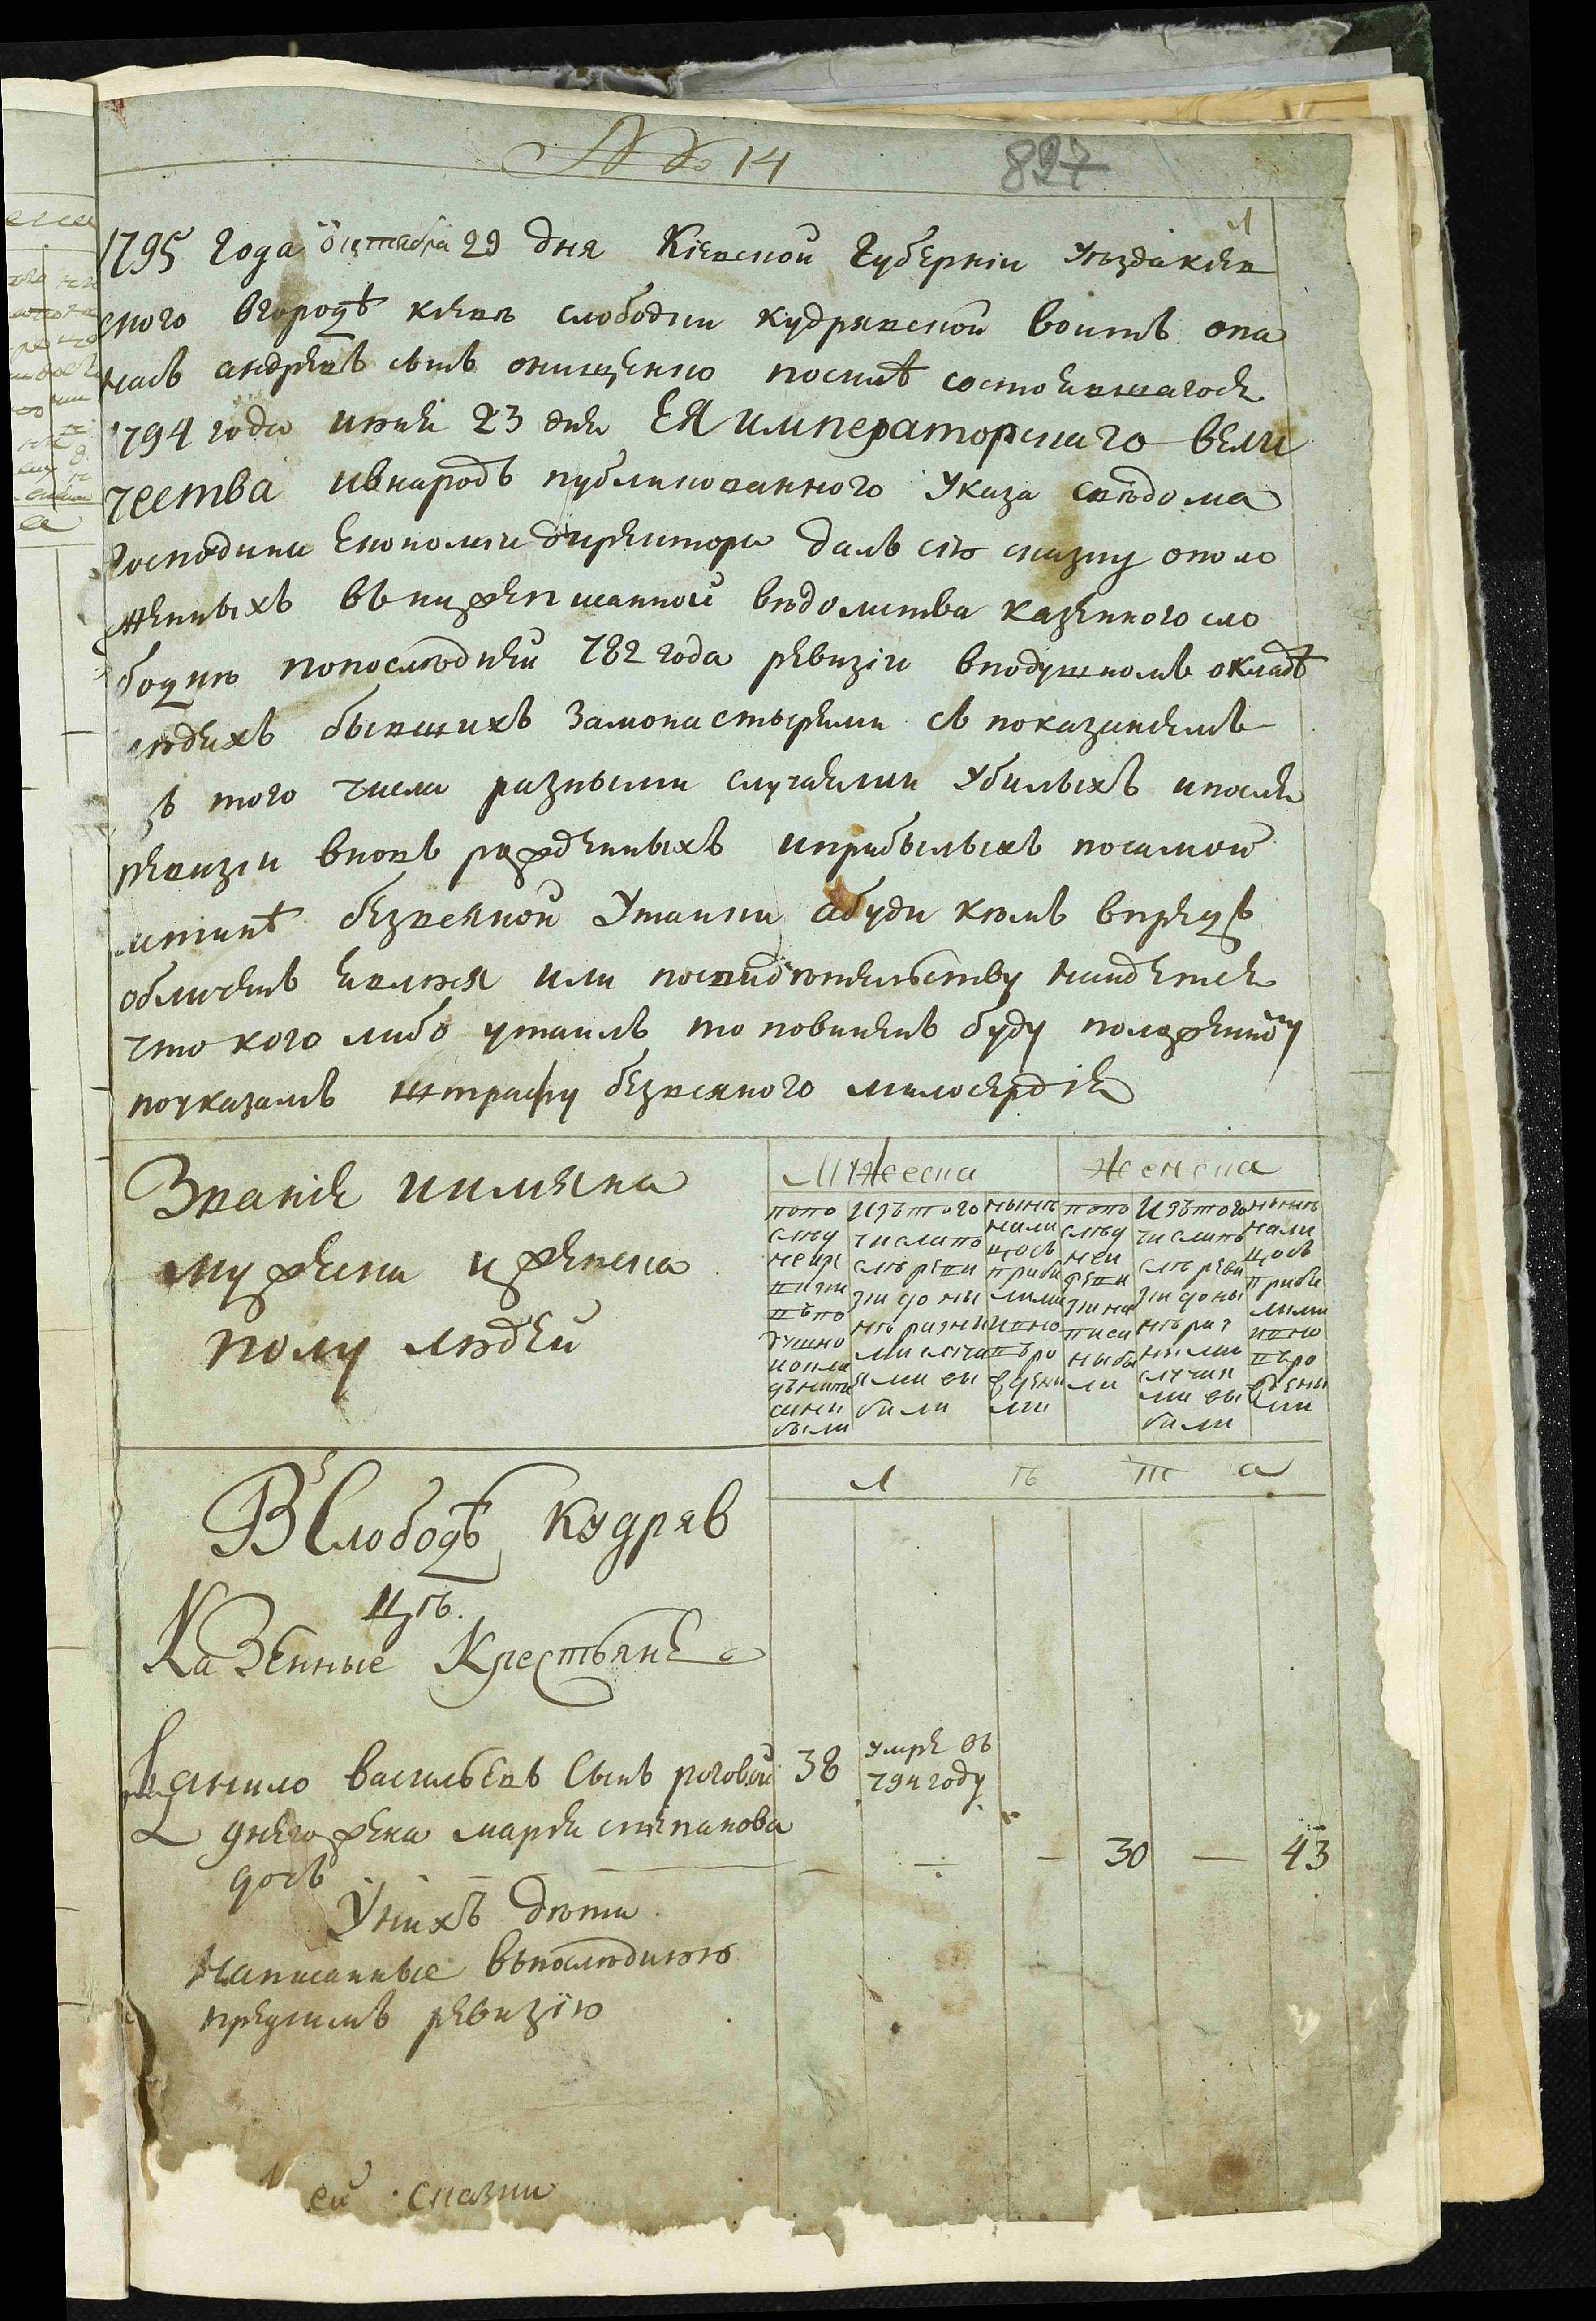 № 14
827
1
1795 года октября 29 дня Кіевской Губерніи уѣзда кіев
ского вгородѣ кіевѣ слободки кудрявской воитъ опа
насъ андреевъ сынъ онищенко посилѣ состоявшагося
1794 года июня 23 дня ЕЯ императорскаго вели
чества ивнародъ публикованного Указа свѣдома
Господина Економіи директора далъ сію сказку ополо
женныхъ въ нижеписанной вѣдомства казенного сло
бодкѣ попослѣдней 782 года ревизіи вподушномъ окладѣ
людяхъ бывшихъ замонастырями съ показаніемъ
зъ того числа разными случаями убылыхъ ипосля
ревизіи вновь рожденныхъ иприбылыхъ посамой
истинѣ безвсякой Утайки абуди кѣмъ впредъ
обличенъ явлюся или посвидѣтельству найдется
что кого либо утаилъ то повиненъ буду положенному
поуказамъ штрафу безвсякого милосердія
Званіе иимяна
мужеска иженска
полу людей
Мужеска Женска
попо слѣд ней ре визіи въ по душно мокла дѣнапи сани были
изътого числапо слѣ реви зіи до ны нѣ разны ми случа ями вы били
нынѣ нали цось приби лими ивно въро ждени ми
попо слѣд ней реви зіи на писа ны бы ли
Изътого числапо слѣ реви зіи доны нѣ раз ными случая ми вы били
нынѣ нали цось приби лими ивно въро ждени ми
Л ѣ т а
ВЪ Слободѣ Кудряв
цѣ.
КаЗенные Крестьяне
Данило васильевъ Сынъ роговой 38 умре въ
794 году
Унего жена марья степанова
дочь — — — 30 — 43
Унихъ дѣти
Написанные въпослѣднюю
предсимъ ревизію
ей сказки